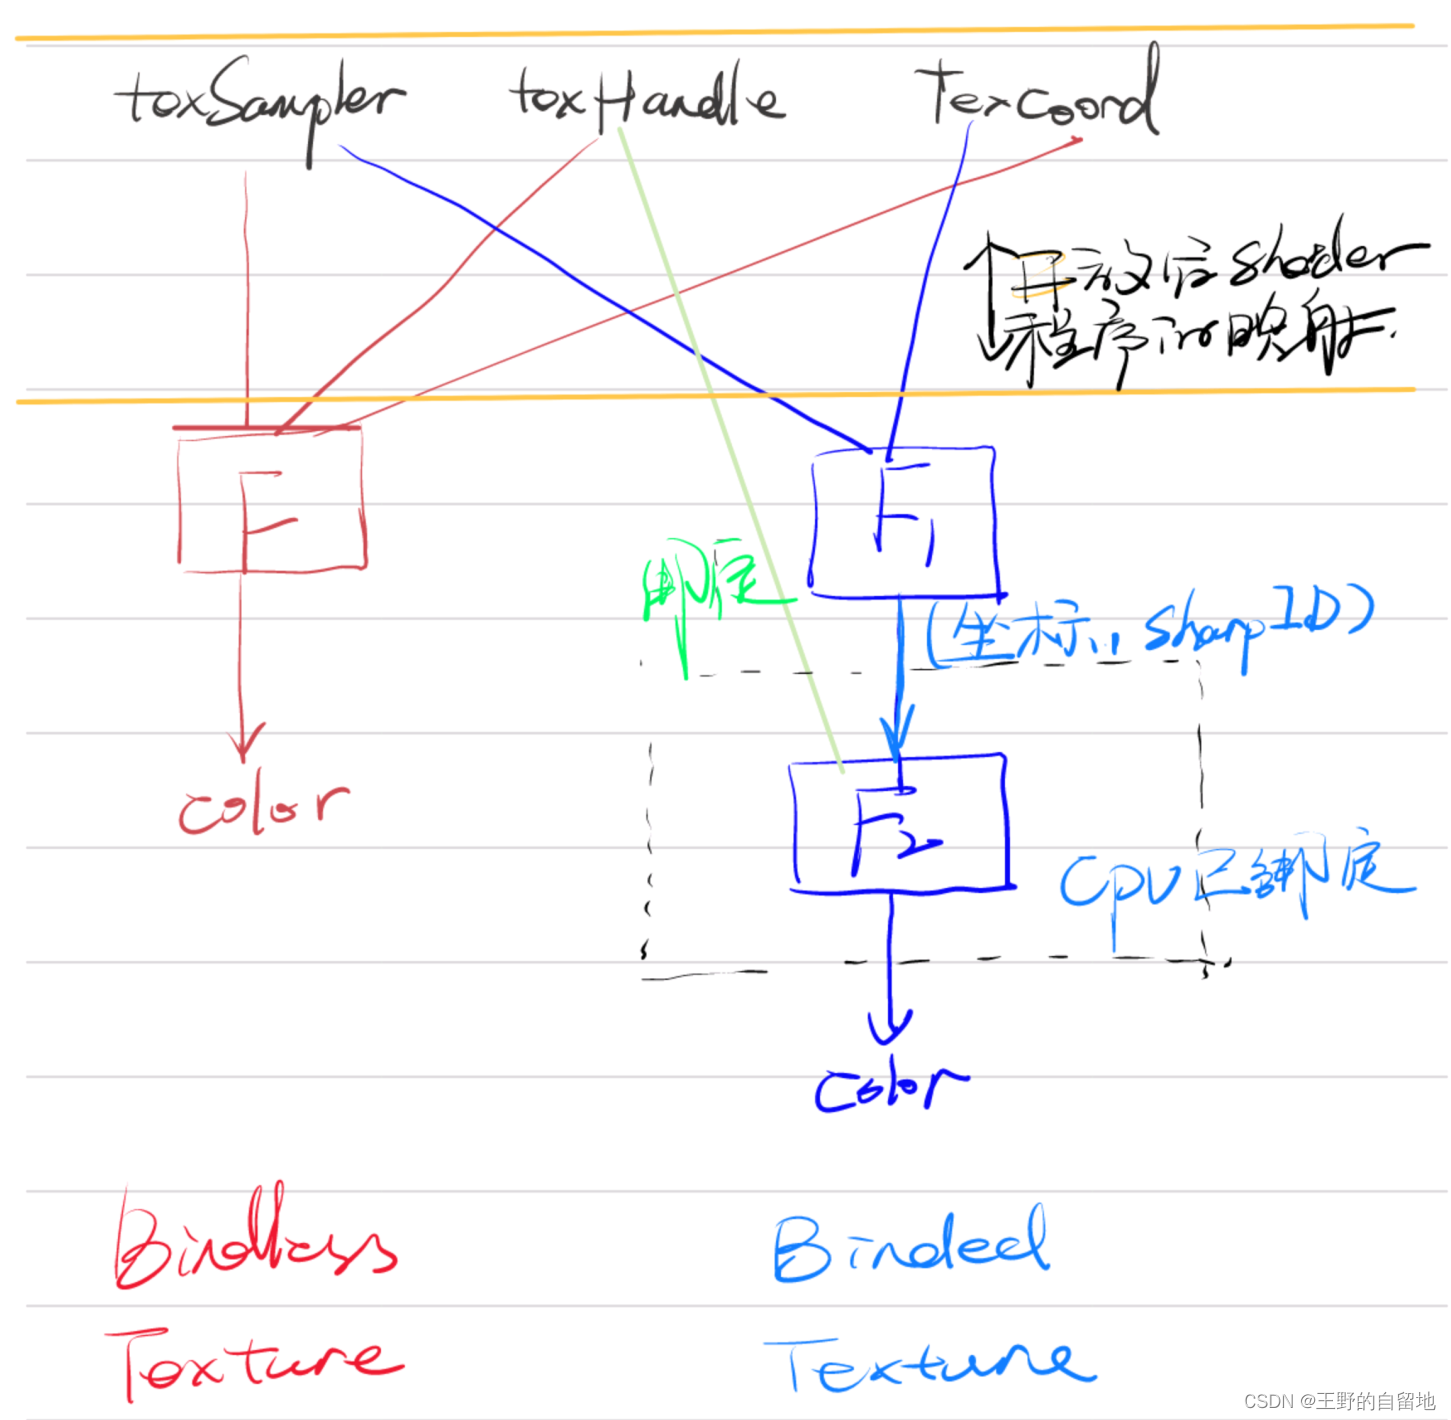 texSampler texHandle Texcoord
开放给shader
程序in映射.
F
F1
绑定
(坐标,, SharpID)
F2
color
CPU已绑定
color
Bindless
Binded
Texture
Texture
CSDN @王野的自留地